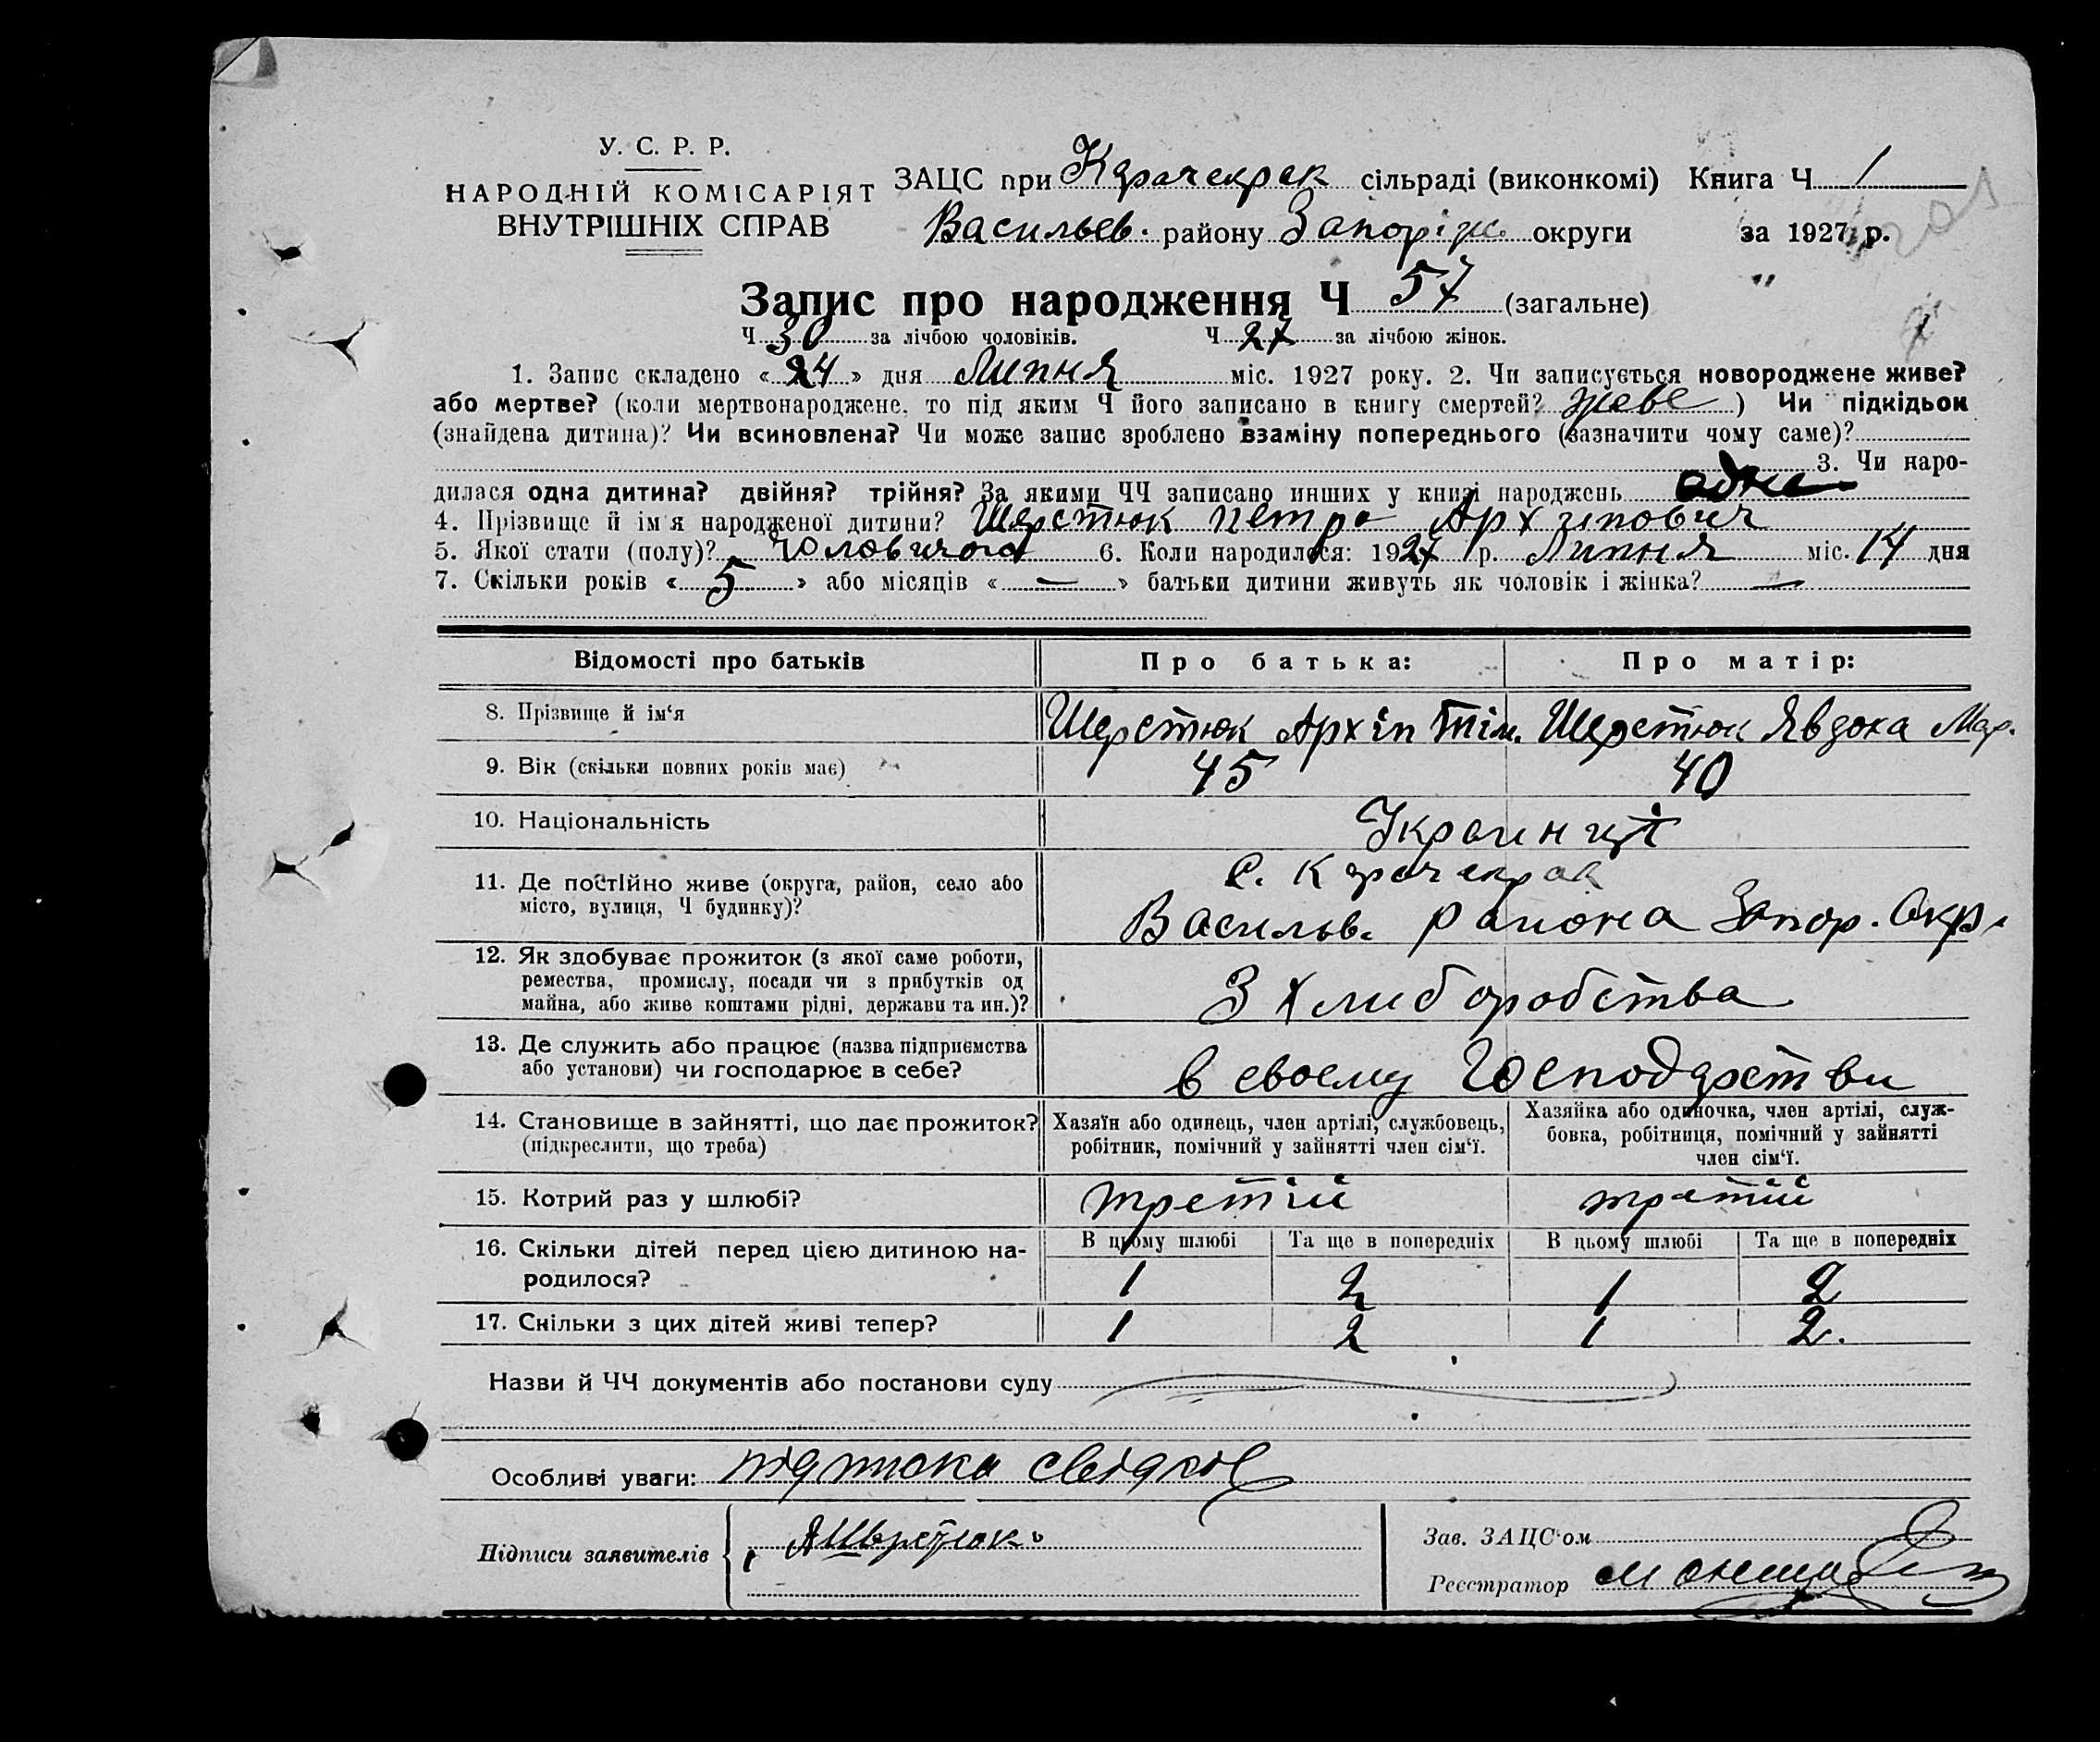 У. С. Р. Р.
НАРОДНІЙ КОМІСАРІЯТ
ВНУТРІШНІХ СПРАВ
ЗАЦС при Карачекрак сільраді (виконкомі) Книга Ч 1
Васильев. району Запоріж. округи за 1927 р.
Запис про народження Ч 57 (загальне)
Ч 30 за лічбою чоловіків. Ч 27 за лічбою жінок.
1. Запис складено « 24 » дня Липня міс. 1927 року. 2. Чи записується новороджене живе?
або мертве? (коли мертвонароджене, то під яким Ч його записано в книгу смертей? живе ) Чи підкідьок
(знайдена дитина)? Чи всиновлена? Чи може запис зроблено взаміну попереднього (зазначити чому саме)?
3. Чи наро-
дилася одна дитина? двійня? трійня? За якими ЧЧ записано инших у книзі народжень одне
4. Прізвище й ім'я народженої дитини? Шерстюк Петро Архипович
5. Якої стати (полу)? Чоловичого 6. Коли народилося: 1927 р. Липня міс. 14 дня
7. Скільки років « 5 » або місяців « — » батьки дитини живуть як чоловік і жінка? —
Відомості про батьків Про батька: Про матір:
8. Прізвище й ім‘я Шерстюк Архіп Тім. Шерстюк Явдока Мар.
9. Вік (скільки повних років має) 45 40
10. Національність Украинці
11. Де постійно живе (округа, район, село або
місто, вулиця, Ч будинку)?
с. Карачекрак
Васильв. района Запор. Окр.
12. Як здобуває прожиток (з якої саме роботи,
ремества, промислу, посади чи з прибутків од
майна, або живе коштами рідні, держави та ин.)?
З хлиборобства
13. Де служить або працює (назва підприємства
або установи) чи господарює в себе?
в своему Господарстви
14. Становище в зайнятті, що дає прожиток?
(підкреслити, що треба)
Хазяїн або одинець, член артілі, службовець,
робітник, помічний у зайнятті член сім‘ї.
Хазяйка або одиночка, член артілі, служ-
бовка, робітниця, помічний у зайнятті
член сім‘ї.
15. Котрий раз у шлюбі? третій третій
16. Скільки дітей перед цією дитиною на-
родилося?
В цьому шлюбі Та ще в попередніх В цьому шлюбі Та ще в попередніх
1 2 1 2
17. Скільки з цих дітей живі тепер? 1 2 1 2.
Назви й ЧЧ документів або постанови суду
Особливі уваги: підписка свідків
Підписи заявителів АШерстюк
Зав. ЗАЦС‘ом
Реєстратор